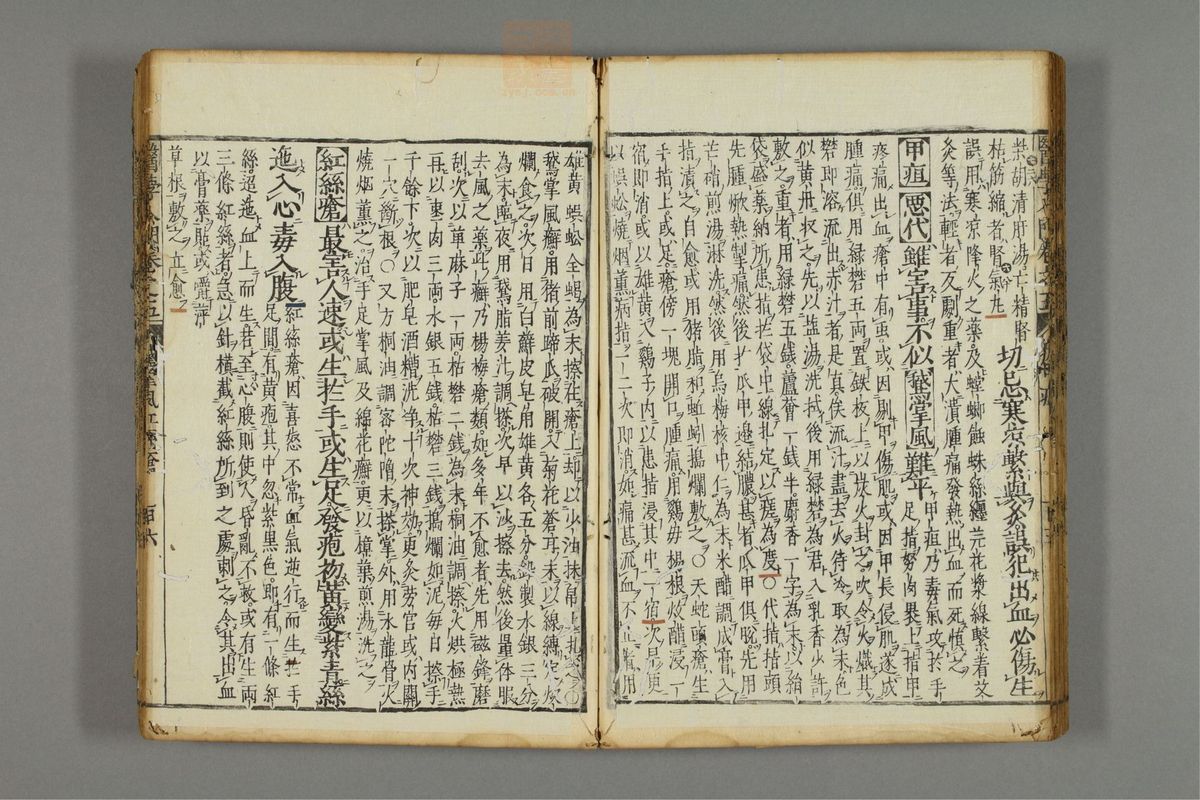 柴胡清肝湯亡精腎
枯筋縮者腎氣丸切忌寒涼繫與灸誤犯出血必傷生
誤用寒涼降火之藥及蟷螂蝕蛛絲纏芫花漿線繫着艾
灸等法輕者反劇重者大潰腫痛發熱出血而死慎之
甲疽惡代雖害事不似鵞掌風難平甲疽乃毒氣攻於手
足指努肉裹上指甲
疼痛出血瘡中有虫或因剔甲傷肌或因甲長侵肌遂成
腫痛俱用綠礬五兩置鉄板上以炭火封之吹令火熾其
礬即溶流出赤汁者是真俟流汁盡去火待冷取為末色
似黃丹收之先以塩湯洗拭後用綠礬為君入乳香少許
敷之重者用綠礬五錢蘆薈一錢半麝香一字為末以絹
袋盛藥納所患指於袋中線扎定以瘥為度○代指指頭
先腫焮熱掣痛然後於爪甲邊結膿甚者爪甲俱脫先用
芒硝煎湯淋洗然後用烏梅核中仁為末米醋調成膏入
指漬之自愈或用猪脂和蚯蚓搗爛敷之○天蛇頭瘡生
手指上或足瘡傍一塊開口腫痛用鷄毋楊根炆醋浸一
宿即消或以雄黃入鷄子內以患指浸其中一宿次早更
以蜈蚣燒烟薰病指一二次即消如痛甚流血不止者用
雄黃蜈蚣全蝎為末擦在瘡上却以少油抹帛上扎之○
鵞掌風癬用猪前蹄爪破開入菊花蒼耳末以線縛定炆
爛食之次日用白蘚皮皂角雄黃各五分製水銀三分
為末臨夜用鵞脂姜汁調擦次早以沙擦去然後量体服
去風之藥此癬乃楊梅瘡類如多年不愈者先用磁鋒磨
刮次以萆麻子一兩枯礬二錢為末桐油調擦火烘極熱
再以速肉三兩水銀五錢枯礬三錢搗爛如泥每日擦手
千餘下次以肥皂酒糟洗净十次神効更灸勞宮或內關
一穴斷根○又方桐油調密陀僧末擦掌外用水龍骨火
燒烟薰之治手足掌風及綿花癬更以樟葉煎湯洗之
紅絲瘡最害人速或生於手或生足發疱初黃變紫青絲
迤入心毒入腹紅絲瘡因喜怒不常血氣逆行而生於手
足間有黃疱其中忽紫黑色即有一條紅
絲迢迤血上而生若至心腹則使人昏亂不救或有生兩
三條紅絲者急以針橫截紅絲所到之處刺之令其出血
以膏藥貼或嚼萍
草根敷之立愈